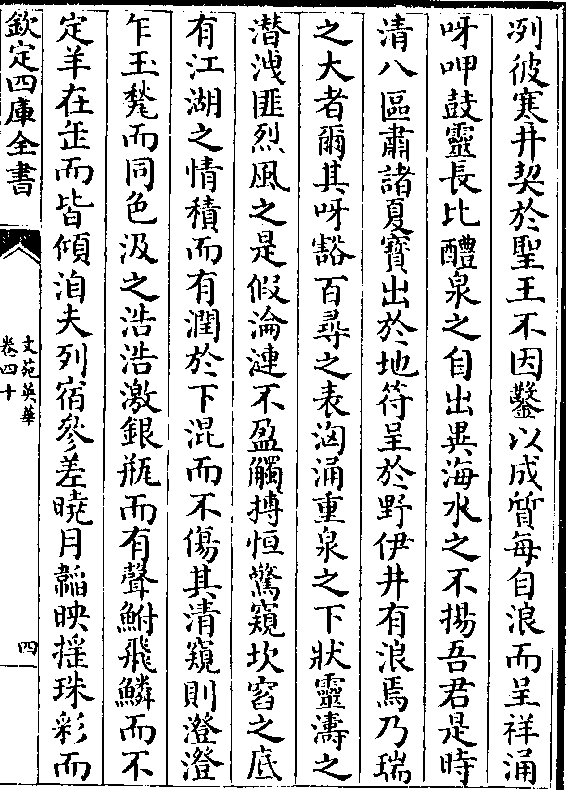 冽彼寒井契於聖王不因鑿以成質每自浪而呈祥涌
呀呷鼓靈長比醴泉之自出異海水之不揚吾君是時
清八區肅諸夏寶出於地符呈於野伊井有浪焉乃瑞
之大者爾其呀豁百尋之表洶涌重泉之下狀靈濤之
潜洩匪烈風之是假淪漣不盈觸搏恒驚窺坎窞之底
有江湖之情積而有潤於下混而不傷其清窺則澄澄
乍玉甃而同色汲之浩浩激銀瓶而有聲鮒飛鱗而不
定羊在缶而皆傾洎夫列宿參差曉月韜映揺珠彩而
欽定四庫全書
文苑英華
卷四十
四